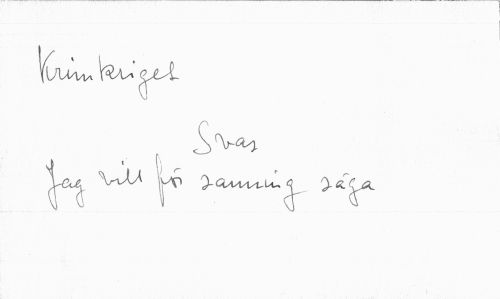 Krimkriget
Svar
Jag vill för sanning säga